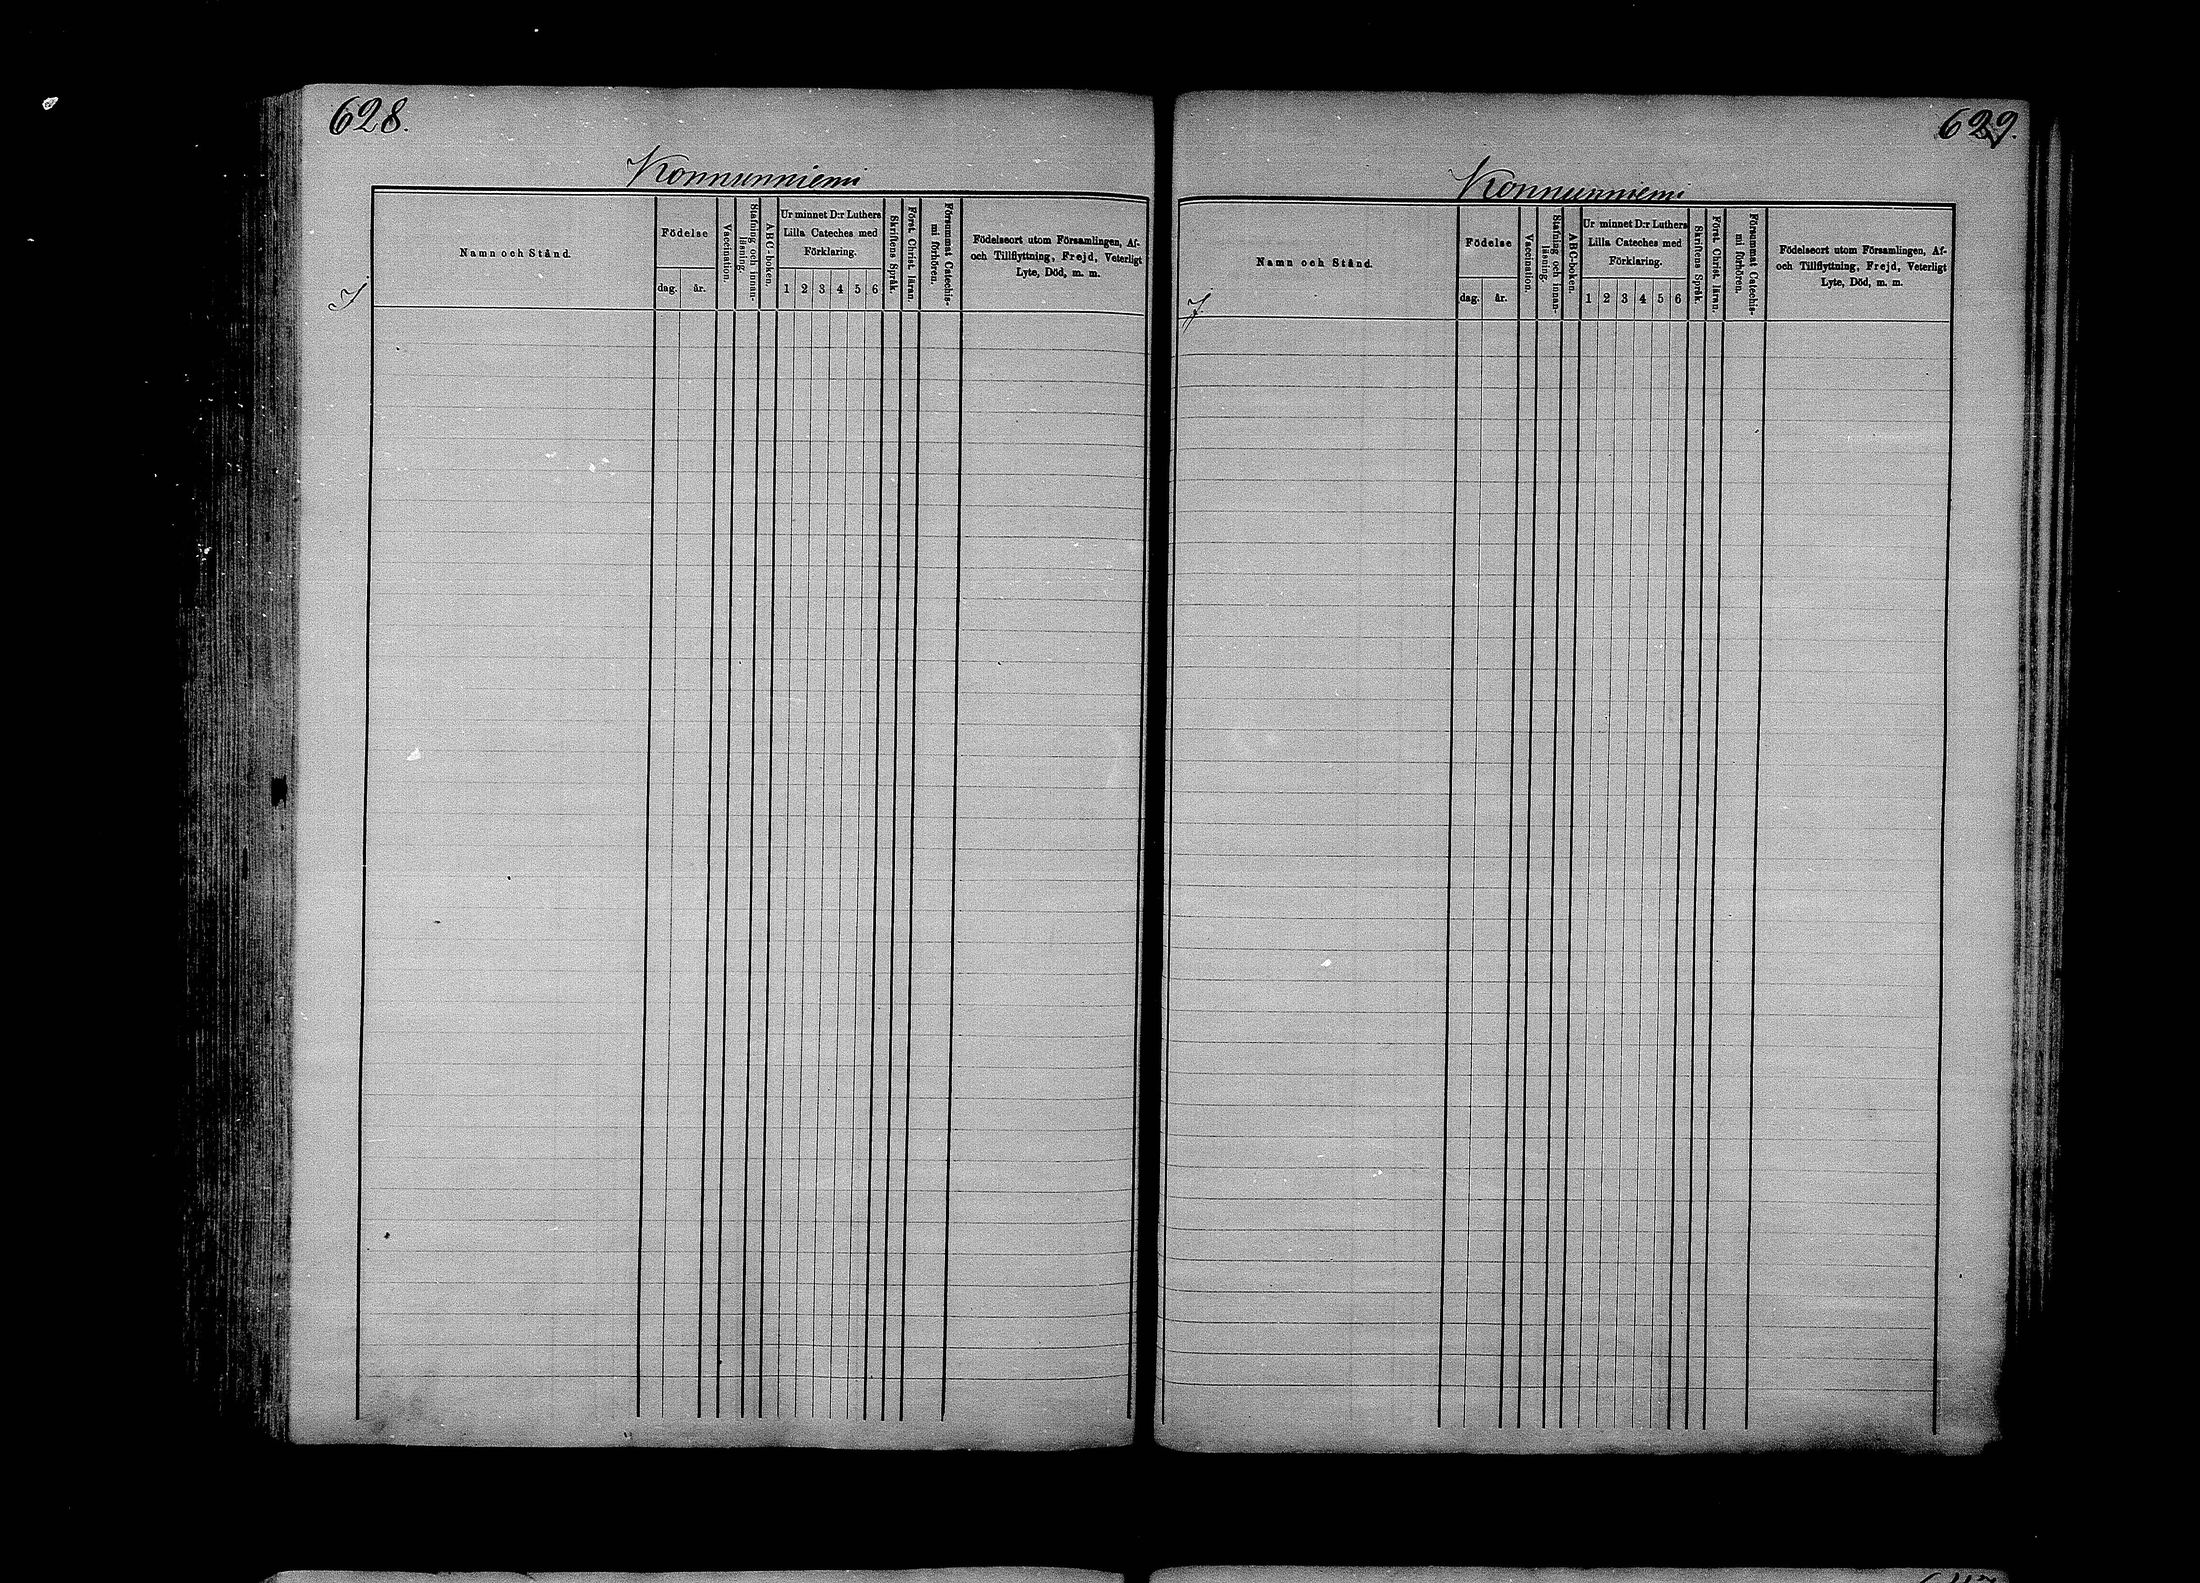 628.
Konnunniemi
Namn och Stånd.
Födelse
dag.
år.
Vaccination.
Stafning och innan-
läsning.
ABC-boken.
Ur minnet D:r Luthers
Lilla Cateches med
Förklaring.
1 2 3 4 5 6
Skriftens Språk.
Först. Christ. läran.
Försummat Catechis-
mi förhören.
Födelseort utom Församlingen, Af-
och Tillflyttning, Frejd, Veterligt
Lyte, Död, m. m.
629.
Konnunniemi
Namn och Stånd.
Födelse
dag.
år.
Vaccination.
Stafning och innan-
läsning.
ABC-boken.
Ur minnet D:r Luthers
Lilla Cateches med
Förklaring.
1 2 3 4 5 6
Skriftens Språk.
Först. Christ. läran.
Försummat Catechis-
mi förhören.
Födelseort utom Församlingen, Af-
och Tillflyttning, Frejd, Veterligt
Lyte, Död, m. m.